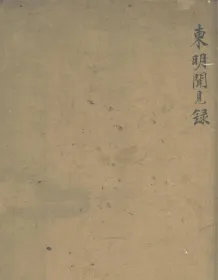 東明聞見录